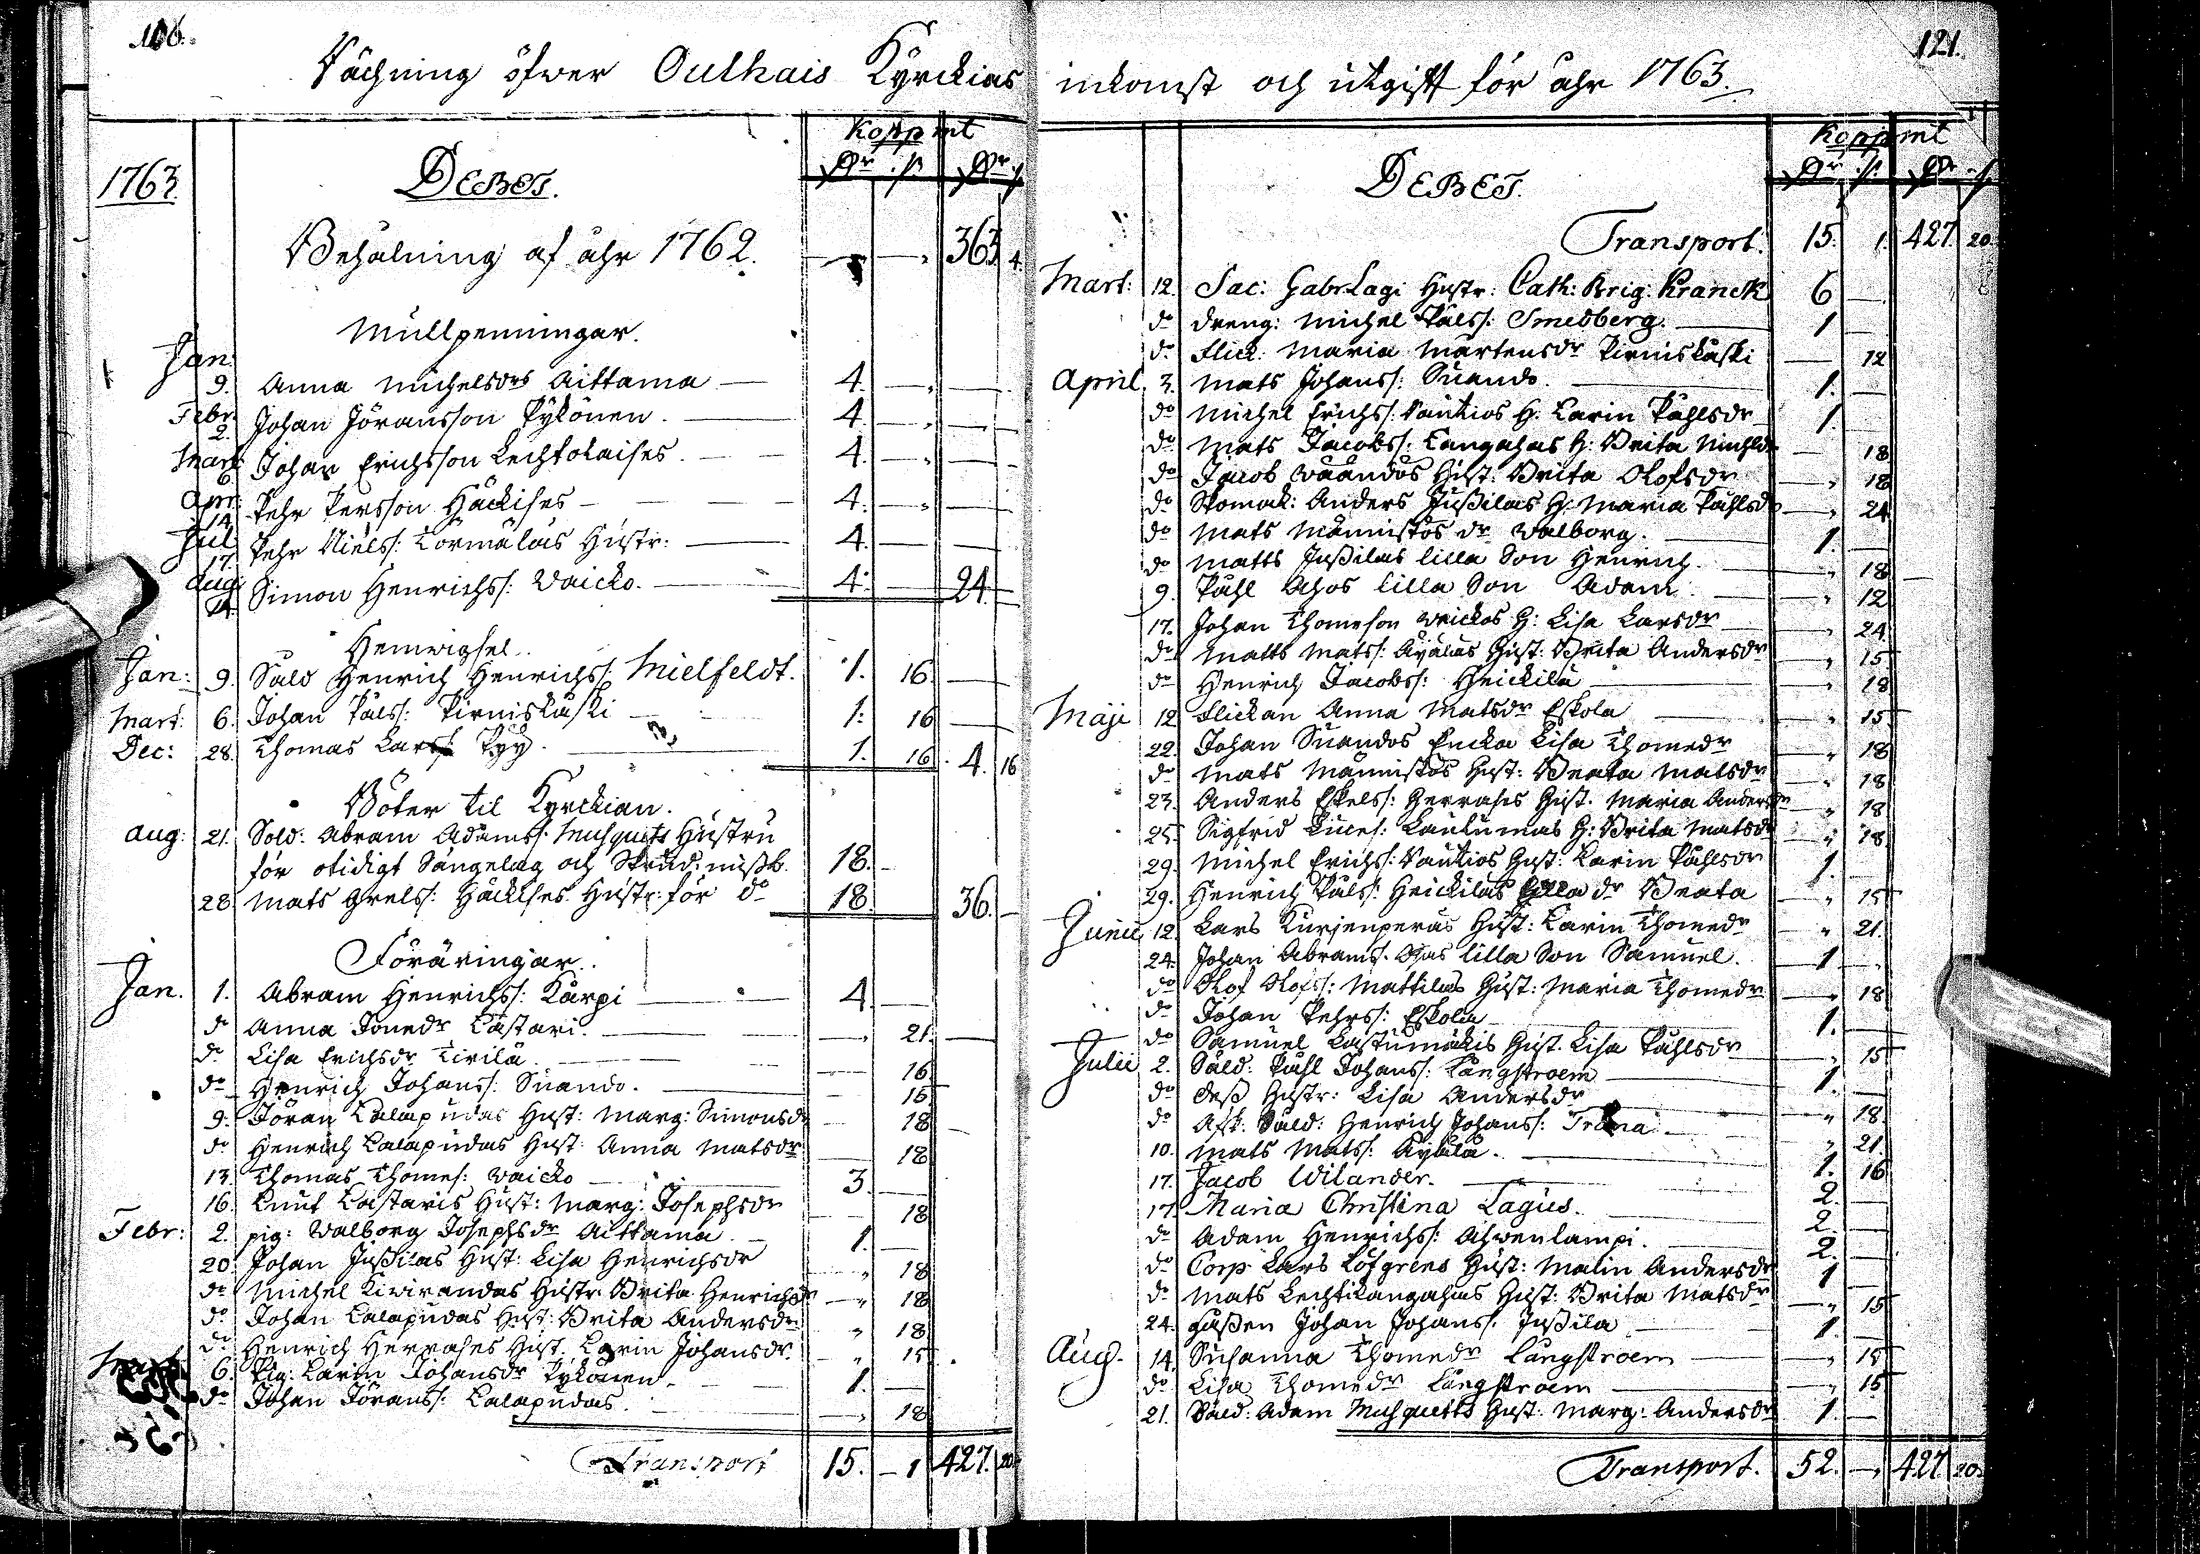 106.
Räckning öfwer Oulhais Kyrckias
Koppmt
Dr. /: Dr /:
1763.
DEBET.
Behålning af åhr 1762. 363 4.
Mullpenningar.
Jan: 9. Anna Michelsdrs Aittama 4.
Febr: 2. Johan Jöransson Pykönen. 4.
Mart: 6 Johan Erichsson Lechtolaises. 4.
Apr: 14 Pehr Persson Häckises 4.
Jul: 17. Pehr Niels/: Törmäläs Hustr: 4.
Aug: Simon Henrichs/: Waicko. 4: 24.
Hemwigsel.
Jan: 9. Sald Henrich Henrichs/: Mielfeldt. 1. 16
Mart: 6. Johan Påls/: Pirniskäski 1: 16
Dec: 28. Thomas Lars/: Pyy. 1. 16. 4. 16
Böter til Kyrckian.
Aug: 21. Sold: Abram Adams/: Musquets Hustru
för otidigt Sängelag och Skrud: mißb. 18.
28. Mats Grels/: Häckises Hustr: för do 18. 36.
Föräringar.
Jan. 1. Abram Henrichs/: Karpi 4.
do Anna Jonedr Castari. 21.
do Lisa Erichsdr Tirilä. 16
do Henrich Johans/: Suando. 15
9. Jöran Lalapudas Hust: Marg: Simonsdr 18
do Henrich Lalapudas Hust: Anna Matsdr 18
13. Thomas Thomes/: Waicko 3.
16. Knut Castaris Hust: Marg: Josephsdr 18
Febr: 2. pig: Walborg Josephsdr Aittama. 1.
20. Johan Jußilas Hust: Lisa Henrichsdr 18
do Michel Kiwirandas Hustr Brita Henrichsdr 18
do Johan Lalapudas Hust: Brita Andersdr 18
do Henrich Herrahes Hust. Carin Johansdr. 15
Mart: 6. Pig: Carin Johansdr Pyköuen. 1.
do Johan Jörans/: Lalapudas. 18
Transport 15. 1 427. 20
121.
inkomst och utgift för åhr 1763.
Koppmt
Dr /: Dr /:
DEBET.
Transport. 15. 1. 427. 20.
Mart: 12. Sac: Gabr Lagi Hustr: Cath: Brig: Kranck 6
do dreng: Michel Påls/: Smedberg. 1
do flick: Maria Mårtensdr Pirniskäski 12
April 3. Mats Johans/: Suando. 1.
do Michel Erichs/: Vautios H: Carin Påhlsdr 1.
do Mats Jacobs/: Cangahas H: Brita Michelsdr 18
do Jacob Waandos Hust: Brita Olofsdr 18
do Skomak: Anders Jußilas H: Maria Påhlsdr 24
do Mats Männistös dr Walborg. 1.
do Matts Jußilas lilla Son Henrich. 18
9. Påhl Ahos lilla Son Adam 12
17. Johan Thomeson Waickos H: Lisa Larsdr 24
do Matts Mats/: Kyäläs Hust: Brita Andersdr 15
do Henrich Jacobs/: Heickilä 18
Maji 12 flickan Anna Matsdr Eskola 15
22. Johan Suandos Encka Lisa Thomedr 18
do Mats Männistös Hust: Beata Matsdr 18
23. Anders Eskels/: Herrahes Hust. Maria Andersdr 18
25. Sigfrid Luces/: Laukumas H: Brita Matsdr 18
29. Michel Erichs/: Vautios Hust: Carin Påhlsdr 1.
29. Henrich Påls/: Heickiläs lilla dr Beata 15
Junii 12. Lars Kurjenperäs Hust: Carin Thomedr 21.
24. Johan Abrams/. Ojas lilla Son Samuel. 1
do Olof Olofs/: Mattilas Hust: Maria Thomedr 18
do Johan Pehrs/: Eskola 1.
do Samuel Castumäkis Hust. Lisa Påhlsdr 15
Julii 2. Såld: Påhl Johans/: Långstroem 1.
do deß Hustr: Lisa Andersdr 18.
do Afsk: Såld: Henrich Johans/: Trana. 21.
10. Mats Mats/: Kyälä. 1. 16
17. Jacob Wilander. 2.
17. Maria Christina Lagus. 2.
do Adam Henrichs/: Ahwenlampi. 2.
do Corp Lars Löfgrens Hust: Malin Andersdr 1
do Mats Lechtikangahas Hust: Brita Matsdr 15
24. gåßen Johan Johans/. Jußila 1.
Aug. 14. Susanna Thomedr Långstroem 15
do Lisa Thomedr Långstroem 15
21. Såld: Adam Musquetts Hust: Marg: Andersdr 1.
Transport. 52. 427 20.